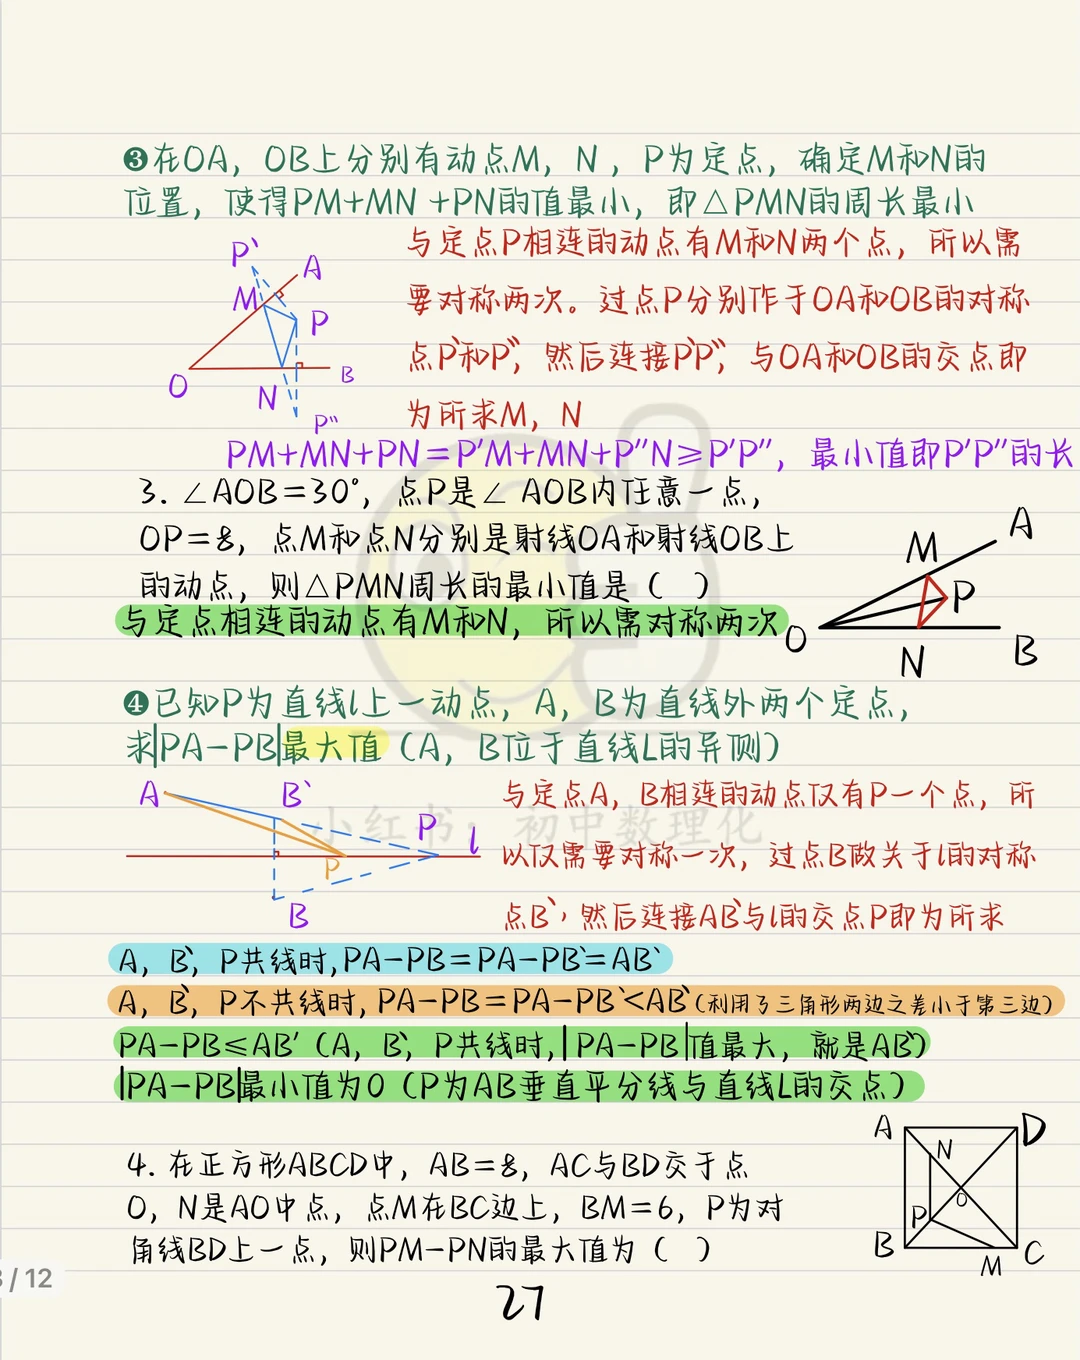 ❸在OA，OB上分别有动点M，N，P为定点，确定M和N的
位置，使得PM+MN+PN的值最小，即△PMN的周长最小
P`
A
M
P
O
N
B
P``
与定点P相连的动点有M和N两个点，所以需
要对称两次。过点P分别作于OA和OB的对称
点P`和P``，然后连接P`P``，与OA和OB的交点即
为所求M，N
PM+MN+PN=P'M+MN+P''N≥P'P''，最小值即P'P''的长
3. ∠AOB=30°，点P是∠AOB内任意一点，
OP=8，点M和点N分别是射线OA和射线OB上
的动点，则△PMN周长的最小值是（ ）
与定点相连的动点有M和N，所以需对称两次
A
M
P
O
N
B
❹已知P为直线l上一动点，A，B为直线外两个定点，
求|PA-PB|最大值（A，B位于直线L的异侧）
A
B`
P
l
P
B
小红书：初中数理化
与定点A，B相连的动点仅有P一个点，所
以仅需要对称一次，过点B做关于l的对称
点B`，然后连接AB`与l的交点P即为所求
A，B`，P共线时，PA-PB=PA-PB`=AB`
A，B`，P不共线时，PA-PB=PA-PB`<AB`（利用了三角形两边之差小于第三边）
PA-PB≤AB'（A，B`，P共线时，|PA-PB|值最大，就是AB`）
|PA-PB|最小值为0（P为AB垂直平分线与直线L的交点）
4. 在正方形ABCD中，AB=8，AC与BD交于点
O，N是AO中点，点M在BC边上，BM=6，P为对
角线BD上一点，则PM-PN的最大值为（ ）
A
D
N
O
P
B
M
C
3/12
27